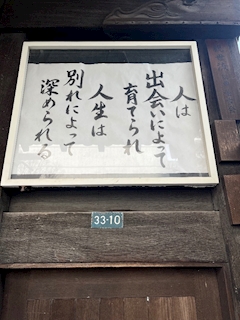 人は
出会いによって
育てられ
人生は
別れによって
深められる
33-10